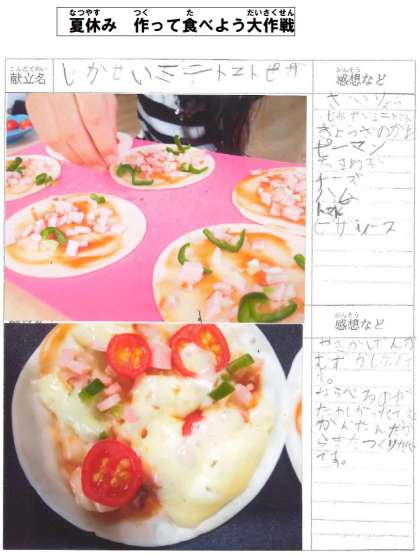 夏休み 作って食べよう大作戦
なつやす つく た だいさくせん
こんだてめい
献立名
じかせいミニトマトピザ
かんそう
感想など
ざいりょう
じかせいミニトマト
ぎょうざのかわ
ピーマン
たまねぎ
チーズ
ハム
ピザソース
かんそう
感想など
ならべるのが
たのしかったです
かんたんだか
らまたつくりたい
です。